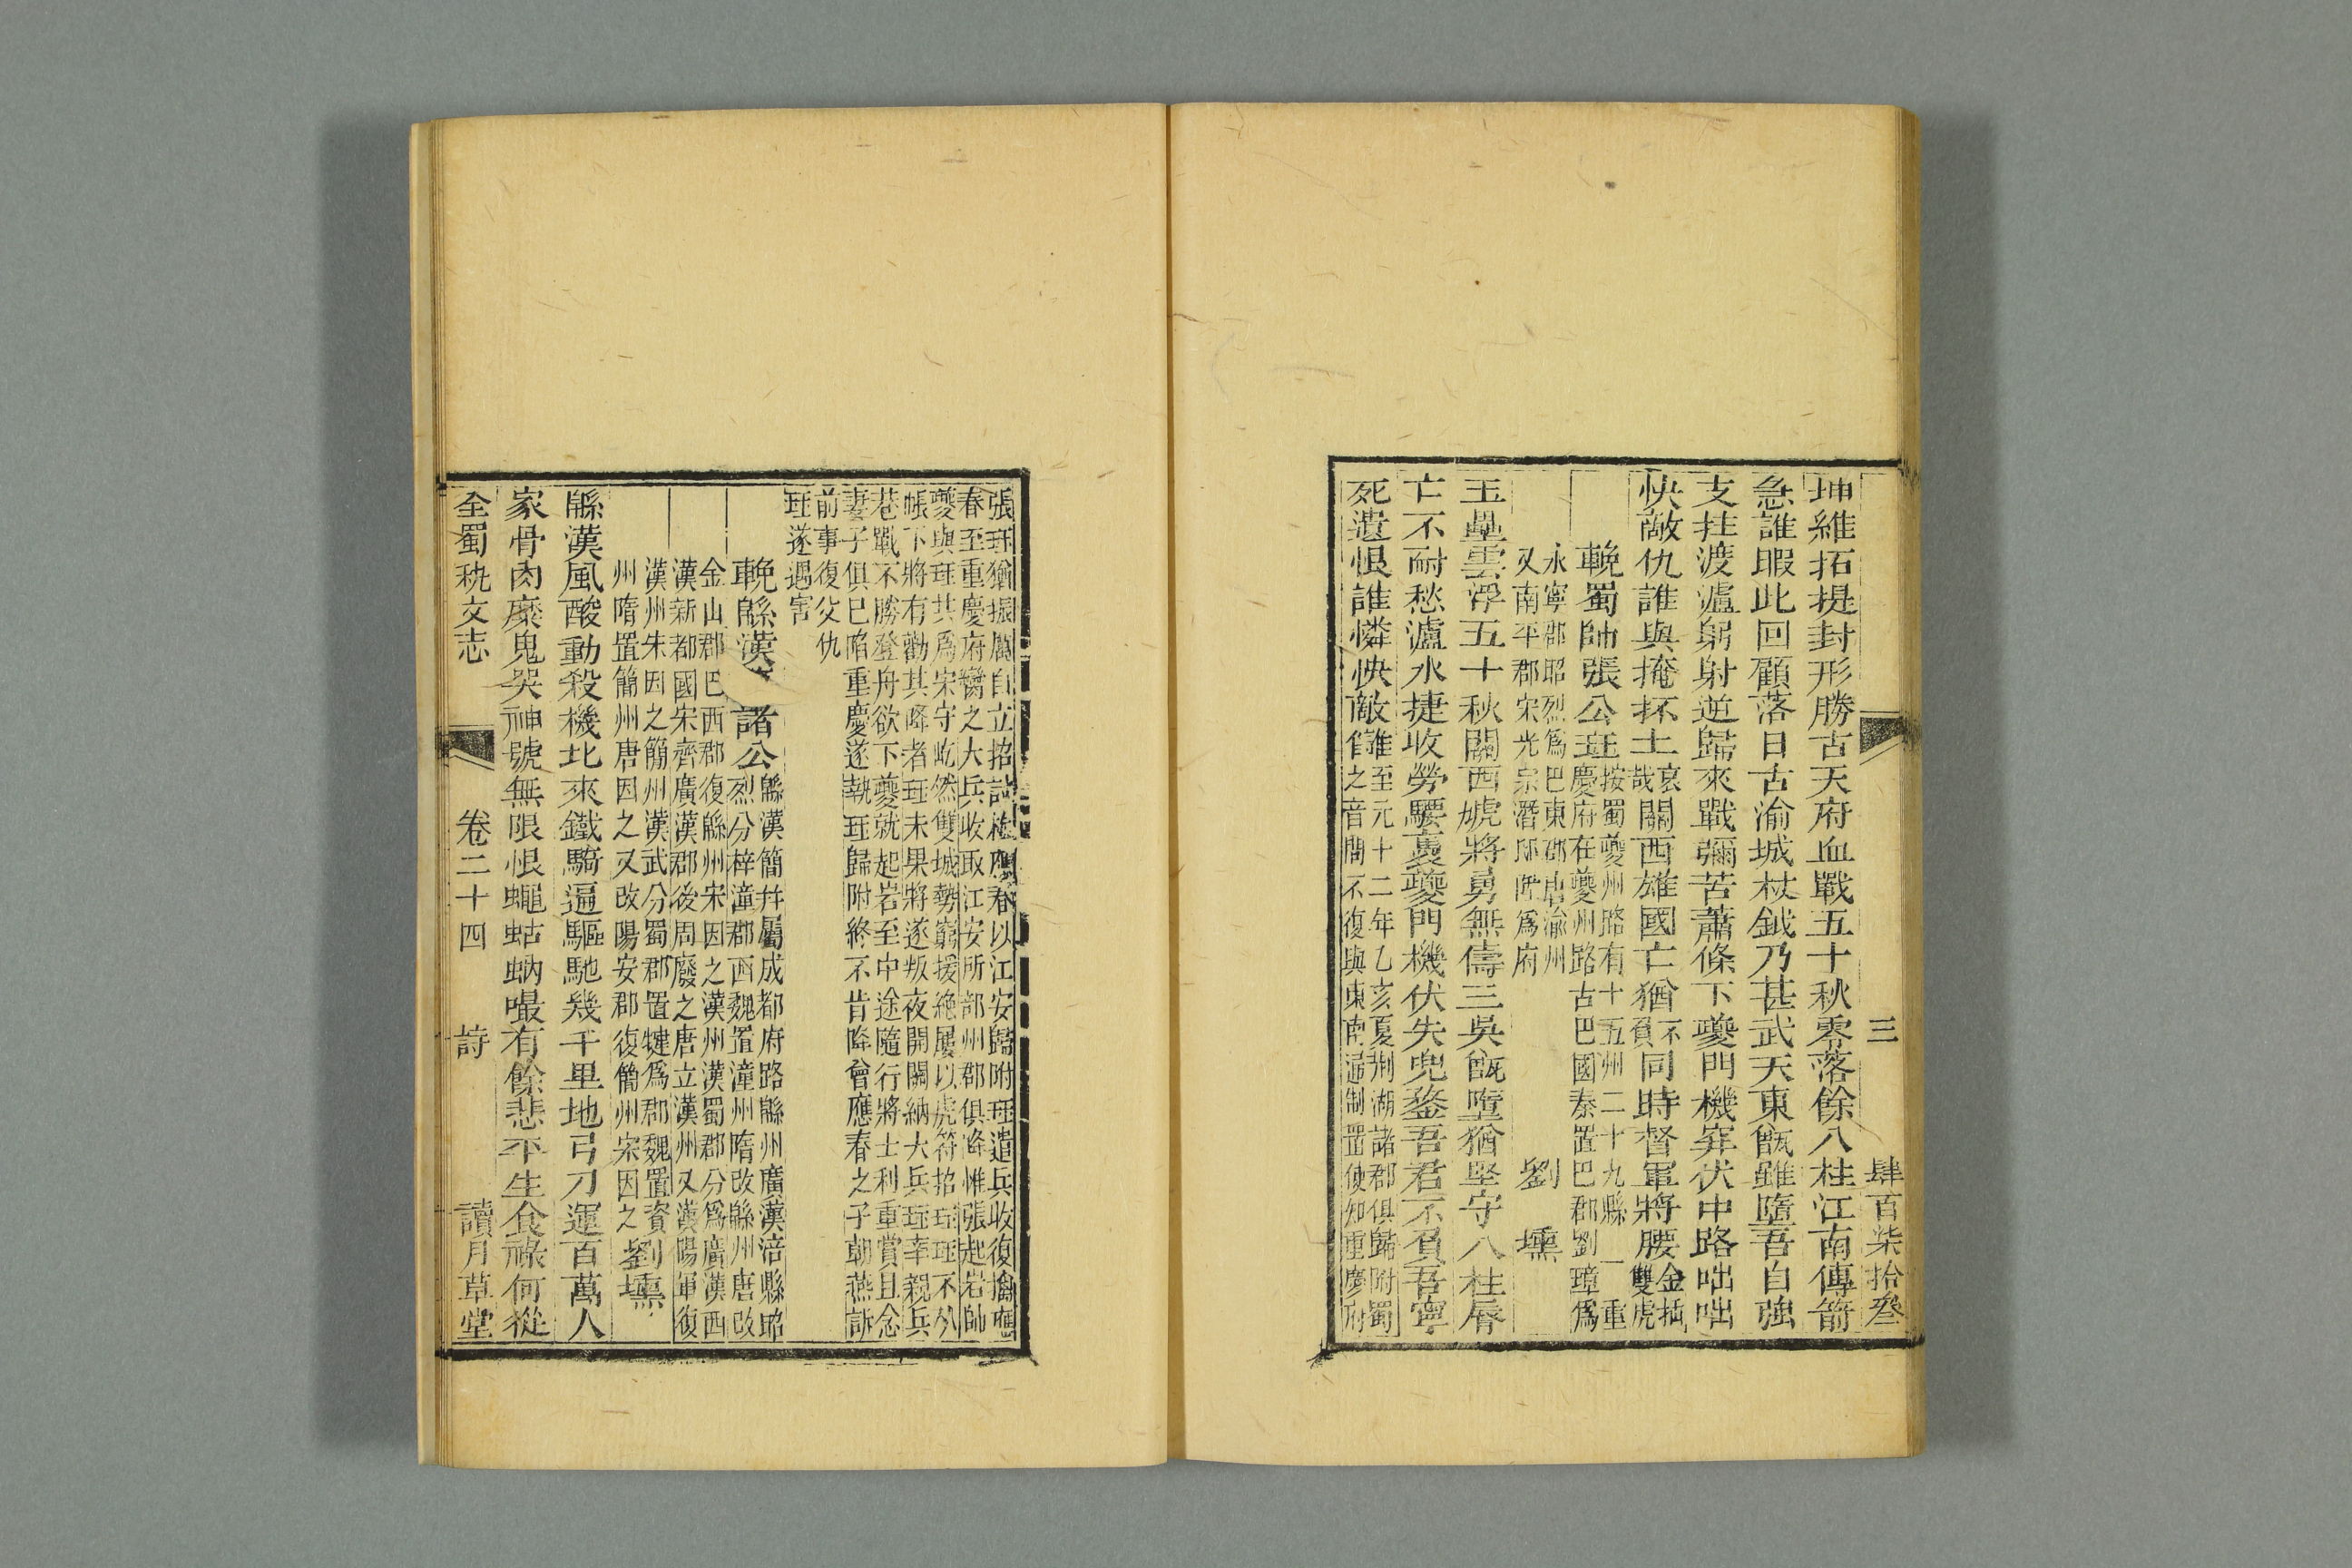 三　肆百柒拾叄
坤維拓提封形勝古天府血戰五十秋零落餘八柱江南傳箭
急誰暇此回顧落日古渝城杖鉞乃甚武天東甑雖墮吾自強
支拄渡瀘躬射逆歸來戰彌苦蕭條下夔門機穽伏中路咄咄
快敵仇誰與掩抔土哀哉關西雄國亡猶不負同時督軍將腰金插雙虎
輓蜀帥張公珏按蜀夔州路有十五州二十九縣一重慶府在夔州路古巴國秦置巴郡劉璋爲
永寧郡昭烈爲巴東郡唐渝州
又南平郡宋光宗潛邸陞爲府
劉壎
玉壘雲浮五十秋關西虓將勇無儔三吳甑墮猶堅守八柱脣
亡不耐愁瀘水捷收勞騕褭夔門機伏失兜鍪吾君不負吾寧
死遺恨誰憐快敵讎至元十二年乙亥夏荆湖諸郡俱歸附蜀之音問不復與東南通制置使知重慶府
張珏猶振厲自立招討梅應春以江安歸附珏遣兵收復擒應
春至重慶府臠之大兵收取江安所部州郡俱降惟張起岩帥
夔與珏共爲宋守屹然雙城勢窮援絶屢以虎符招珏珏不从
帳下將有勸其降者珏未果將遂叛夜開關納大兵珏率親兵
巷戰不勝登舟欲下夔就起岩至中途隨行將士利重賞且念
妻子俱已陷重慶遂執珏歸附終不肯降會應春之子朝燕訴
前事復父仇
珏遂遇害
輓緜漢諸公緜漢簡幷屬成都府路緜州廣漢涪縣昭烈分梓潼郡西魏置潼州隋改緜州唐改
金山郡巴西郡復緜州宋因之漢州漢蜀郡分爲廣漢西
漢新都國宋齊廣漢郡後周廢之唐立漢州又漢陽軍復
漢州朱因之簡州漢武分蜀郡置犍爲郡魏置資
州隋置簡州唐因之又改陽安郡復簡州宋因之
劉壎
緜漢風酸動殺機北來鐵騎遍驅馳幾千里地弓刀運百萬人
家骨肉糜鬼哭神號無限恨蠅蛄蚋嘬有餘悲平生食祿何從
全蜀秇文志　卷二十四　詩　讀月草堂